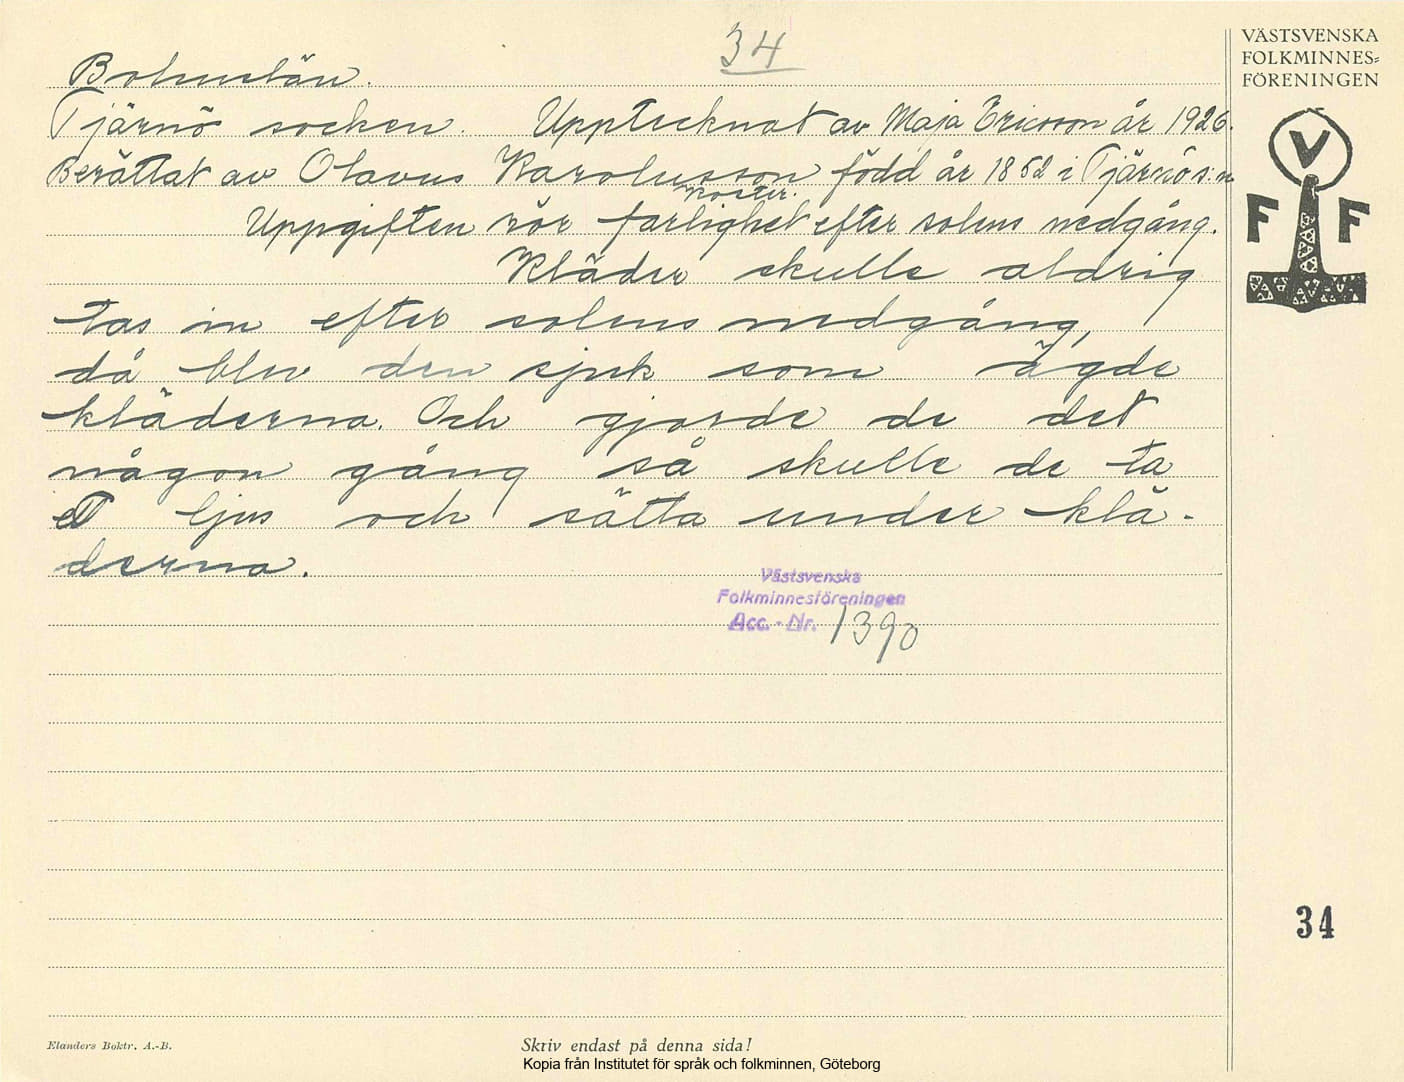 34
Bohuslän.
Tjärnö socken. Upptecknat av Maja Ericsson år 1926.
Berättat av Olavus Karolusson född år 1852 i Tjärnö s:n
Koster.
Uppgiften rör farlighet efter solens nedgång.
Kläder skulle aldrig
tas in efter solens nedgång,
då blev den sjuk som ägde
kläderna. Och gjorde de det
någon gång så skulle de ta
ett ljus och sätta under klä-
derna.
Västsvenska
Folkminnesföreningen
Acc. - Nr. 1390
VÄSTSVENSKA
FOLKMINNES-
FÖRENINGEN
V
F F
34
Elanders Boktr. A.-B.
Skriv endast på denna sida!
Kopia från Institutet för språk och folkminnen, Göteborg